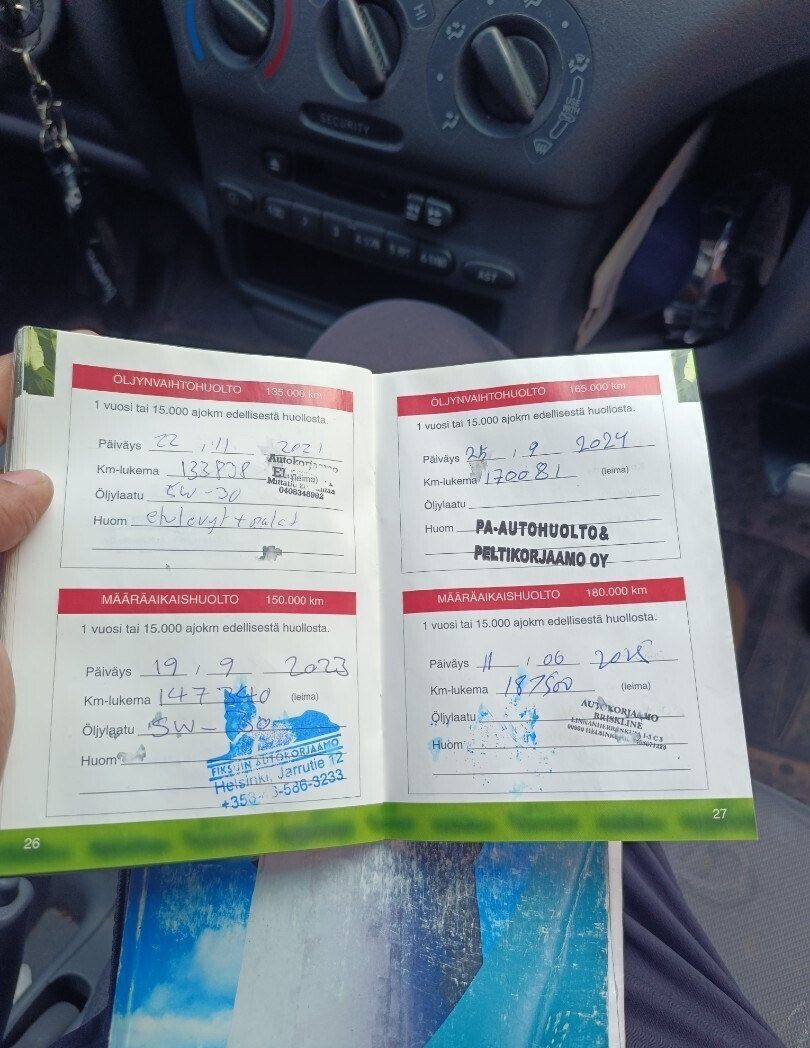 SECURITY
AST
ÖLJYNVAIHTOHUOLTO 135.000 km
1 vuosi tai 15.000 ajokm edellisestä huollosta.
Päiväys 22 . 11 2021
Km-lukema 133838 (leima)
Autokorjaamo
0406348992
Öljylaatu 5W-30
Huom etulevyt + palat
MÄÄRÄAIKAISHUOLTO 150.000 km
1 vuosi tai 15.000 ajokm edellisestä huollosta.
Päiväys 19 , 9 2023
Km-lukema 147340 (leima)
Öljylaatu 5W-30
Huom
FIKSUIN AUTOKORJAAMO
Helsinki, Jarrutie 12
26
ÖLJYNVAIHTOHUOLTO 165.000 km
1 vuosi tai 15.000 ajokm edellisestä huollosta.
Päiväys 25 , 9 2024
Km-lukema 170081 (leima)
Öljylaatu
Huom
PA-AUTOHUOLTO&
PELTIKORJAAMO OY
MÄÄRÄAIKAISHUOLTO 180.000 km
1 vuosi tai 15.000 ajokm edellisestä huollosta.
Päiväys 11 , 06 2025
Km-lukema 187500 (leima)
Öljylaatu
AUTOKORJAAMO
BRISKLINE
Huom
27